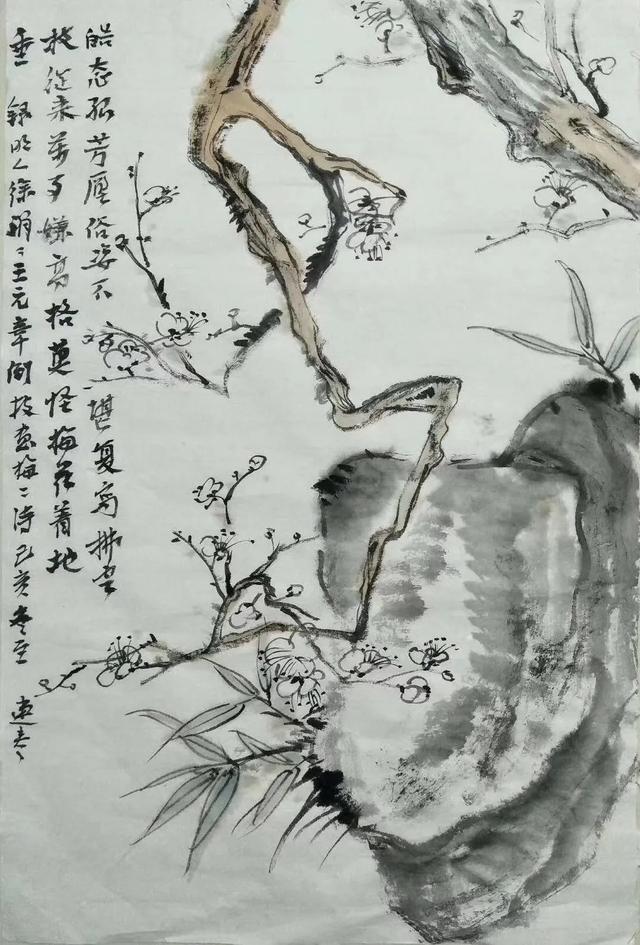 皓态孤芳压俗姿不堪复写拂云
枝从来万事嫌高格莫怪梅花着地
垂 録明人徐渭 王元章倒枝画梅 诗 己亥冬至